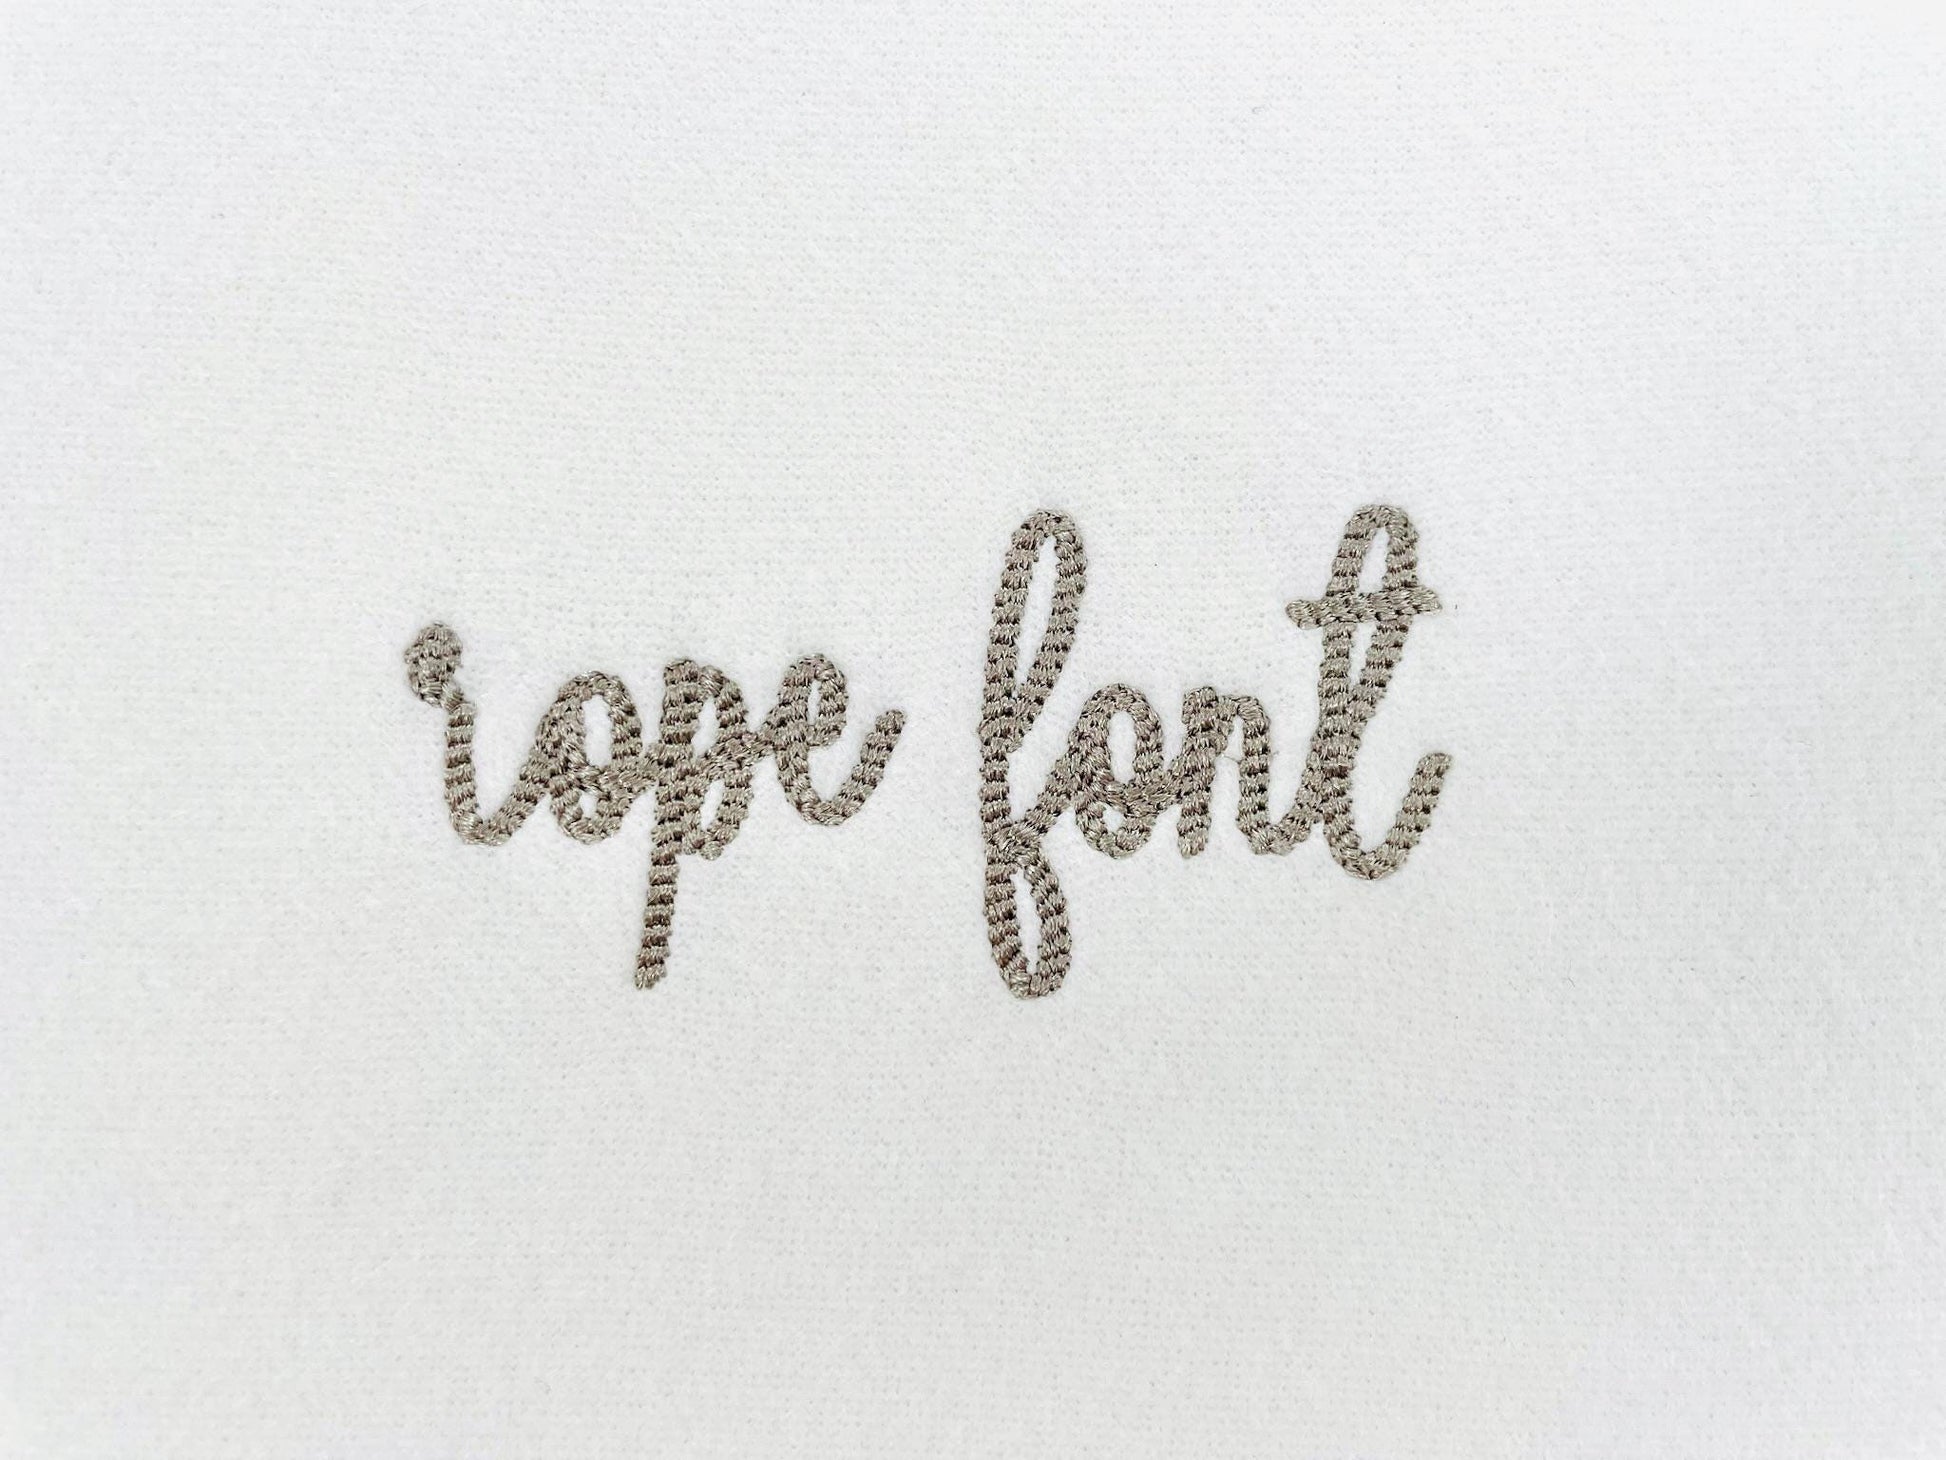 rope font